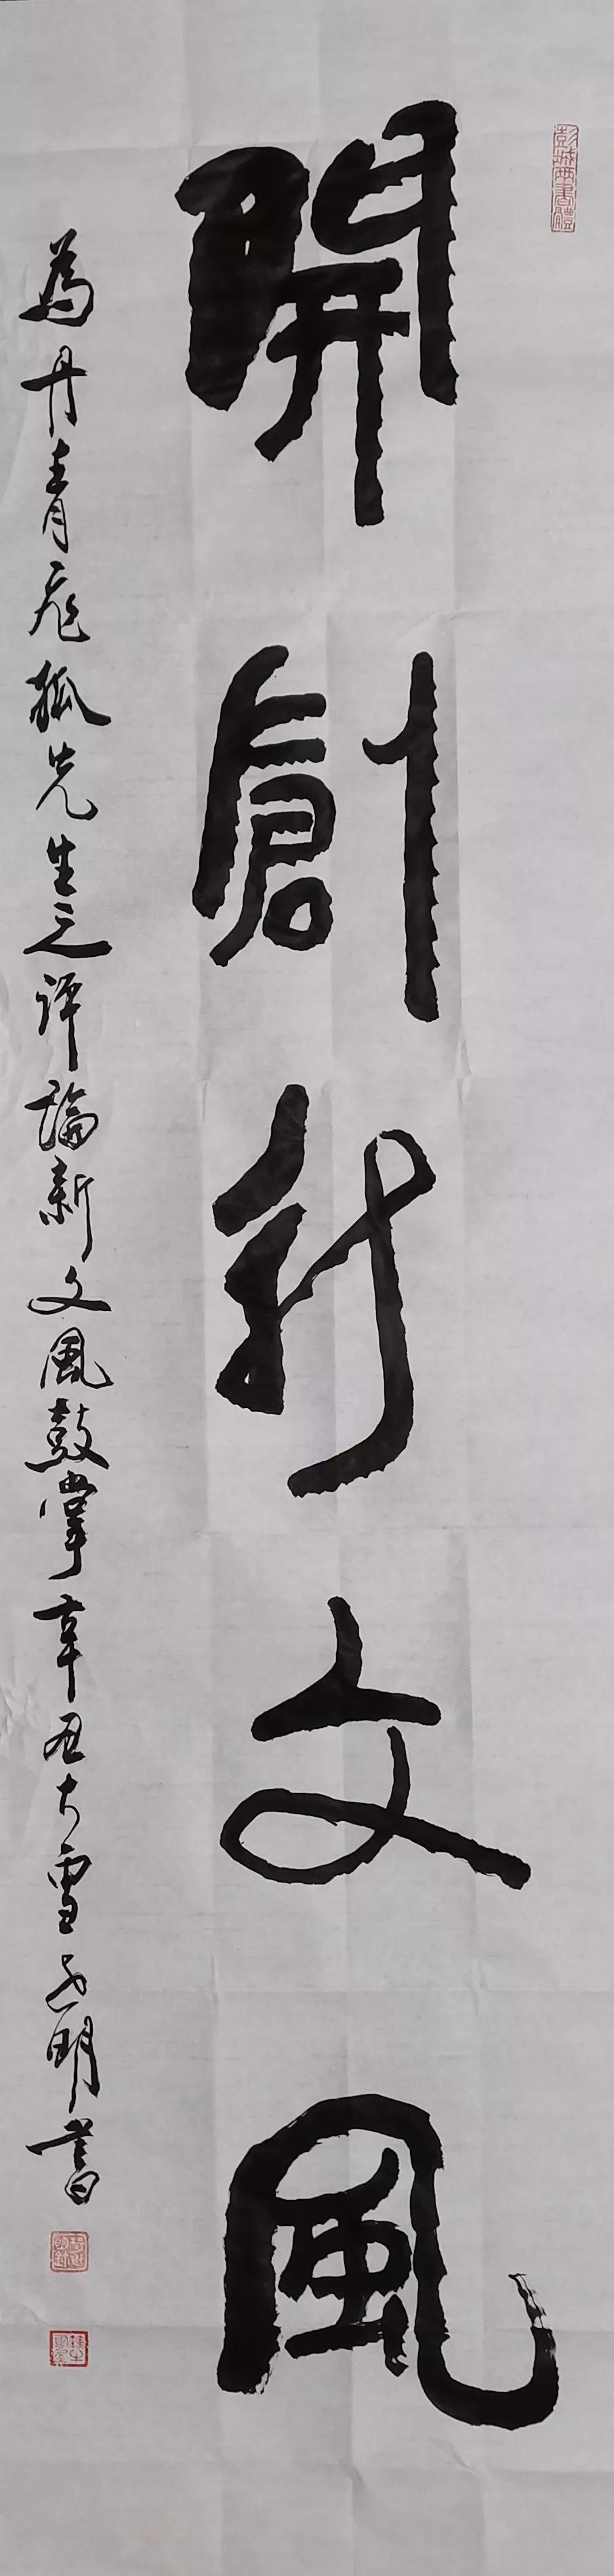 開創新文風
為丹青飛狐先生之評論新文風鼓掌辛丑大雪志明書